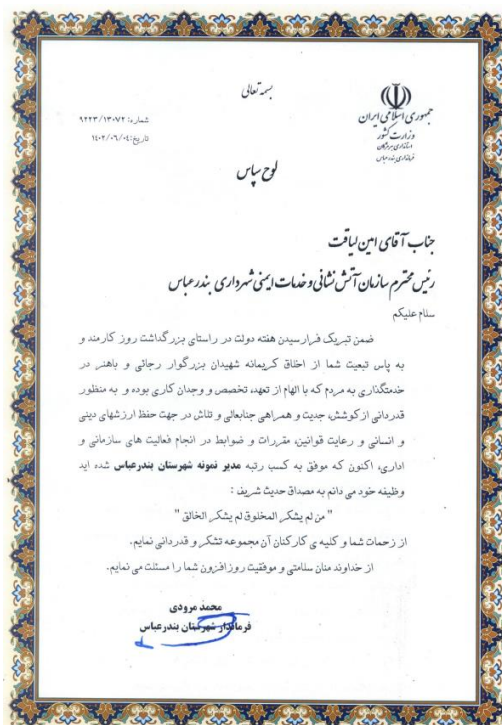 بسمه تعالی
جمهوری اسلامی ایران
وزارت کشور
استانداری هرمزگان
فرمانداری بندرعباس
شماره: ۹۲۲۳/۱۳۰۷۲
تاریخ: ۱۴۰۲/۰۶/۰۴
لوح سپاس
جناب آقای امین لیاقت
رئیس محترم سازمان آتش نشانی و خدمات ایمنی شهرداری بندرعباس
سلام علیکم
ضمن تبریک فرارسیدن هفته دولت در راستای بزرگداشت روز کارمند و
به پاس تبعیت شما از اخلاق کریمانه شهیدان بزرگوار رجائی و باهنر در
خدمتگذاری به مردم که با الهام از تعهد، تخصص و وجدان کاری بوده و به منظور
قدردانی از کوشش، جدیت و همراهی جنابعالی و تلاش در جهت حفظ ارزشهای دینی
و انسانی و رعایت قوانین، مقررات و ضوابط در انجام فعالیت های سازمانی و
اداری، اکنون که موفق به کسب رتبه مدیر نمونه شهرستان بندرعباس شده اید
وظیفه خود می دانم به مصداق حدیث شریف :
" من لم یشکر المخلوق لم یشکر الخالق "
از زحمات شما و کلیه ی کارکنان آن مجموعه تشکر و قدردانی نمایم.
از خداوند منان سلامتی و موفقیت روزافزون شما را مسئلت می نمایم.
محمد مرودی
فرماندار شهرستان بندرعباس